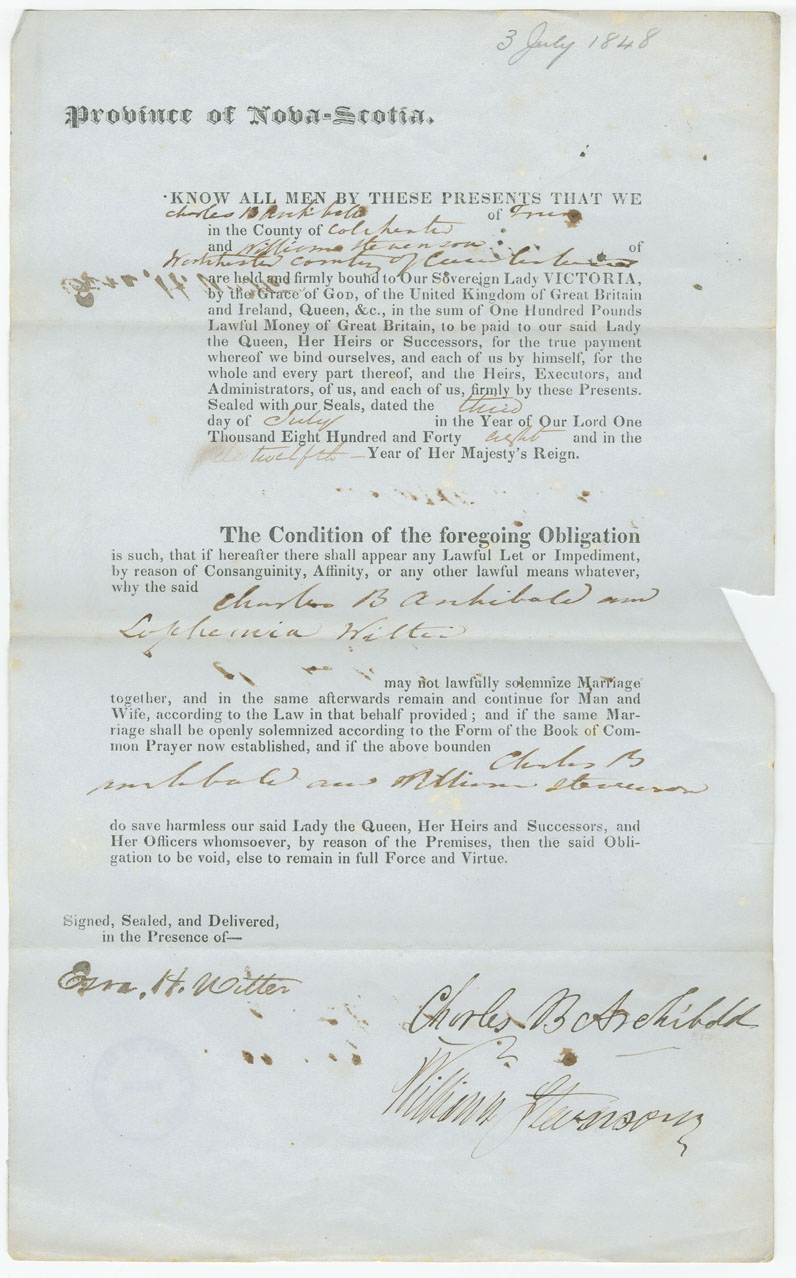 3 July 1848
Province of Nova-Scotia.
KNOW ALL MEN BY THESE PRESENTS THAT WE
Charles B Archibald of Truro
in the County of Colchester
and William Stevenson of
County of
are held and firmly bound to Our Sovereign Lady VICTORIA,
by the Grace of GOD, of the United Kingdom of Great Britain
and Ireland, Queen, &c., in the sum of One Hundred Pounds
Lawful Money of Great Britain, to be paid to our said Lady
the Queen, Her Heirs or Successors, for the true payment
whereof we bind ourselves, and each of us by himself, for the
whole and every part thereof, and the Heirs, Executors, and
Administrators, of us, and each of us, firmly by these Presents.
Sealed with our Seals, dated the third
day of July in the Year of Our Lord One
Thousand Eight Hundred and Forty eight and in the
twelfth - Year of Her Majesty's Reign.
The Condition of the foregoing Obligation
is such, that if hereafter there shall appear any Lawful Let or Impediment,
by reason of Consanguinity, Affinity, or any other lawful means whatever,
why the said
Charles B Archibald and
Witter
may not lawfully solemnize Marriage
together, and in the same afterwards remain and continue for Man and
Wife, according to the Law in that behalf provided; and if the same Mar-
riage shall be openly solemnized according to the Form of the Book of Com-
mon Prayer now established, and if the above bounden
Charles B
Archibald and William Stevenson
do save harmless our said Lady the Queen, Her Heirs and Successors, and
Her Officers whomsoever, by reason of the Premises, then the said Obli-
gation to be void, else to remain in full Force and Virtue.
Signed, Sealed, and Delivered,
in the Presence of—
Ezra. H. Witter
Charles B Archibald
William Stevenson